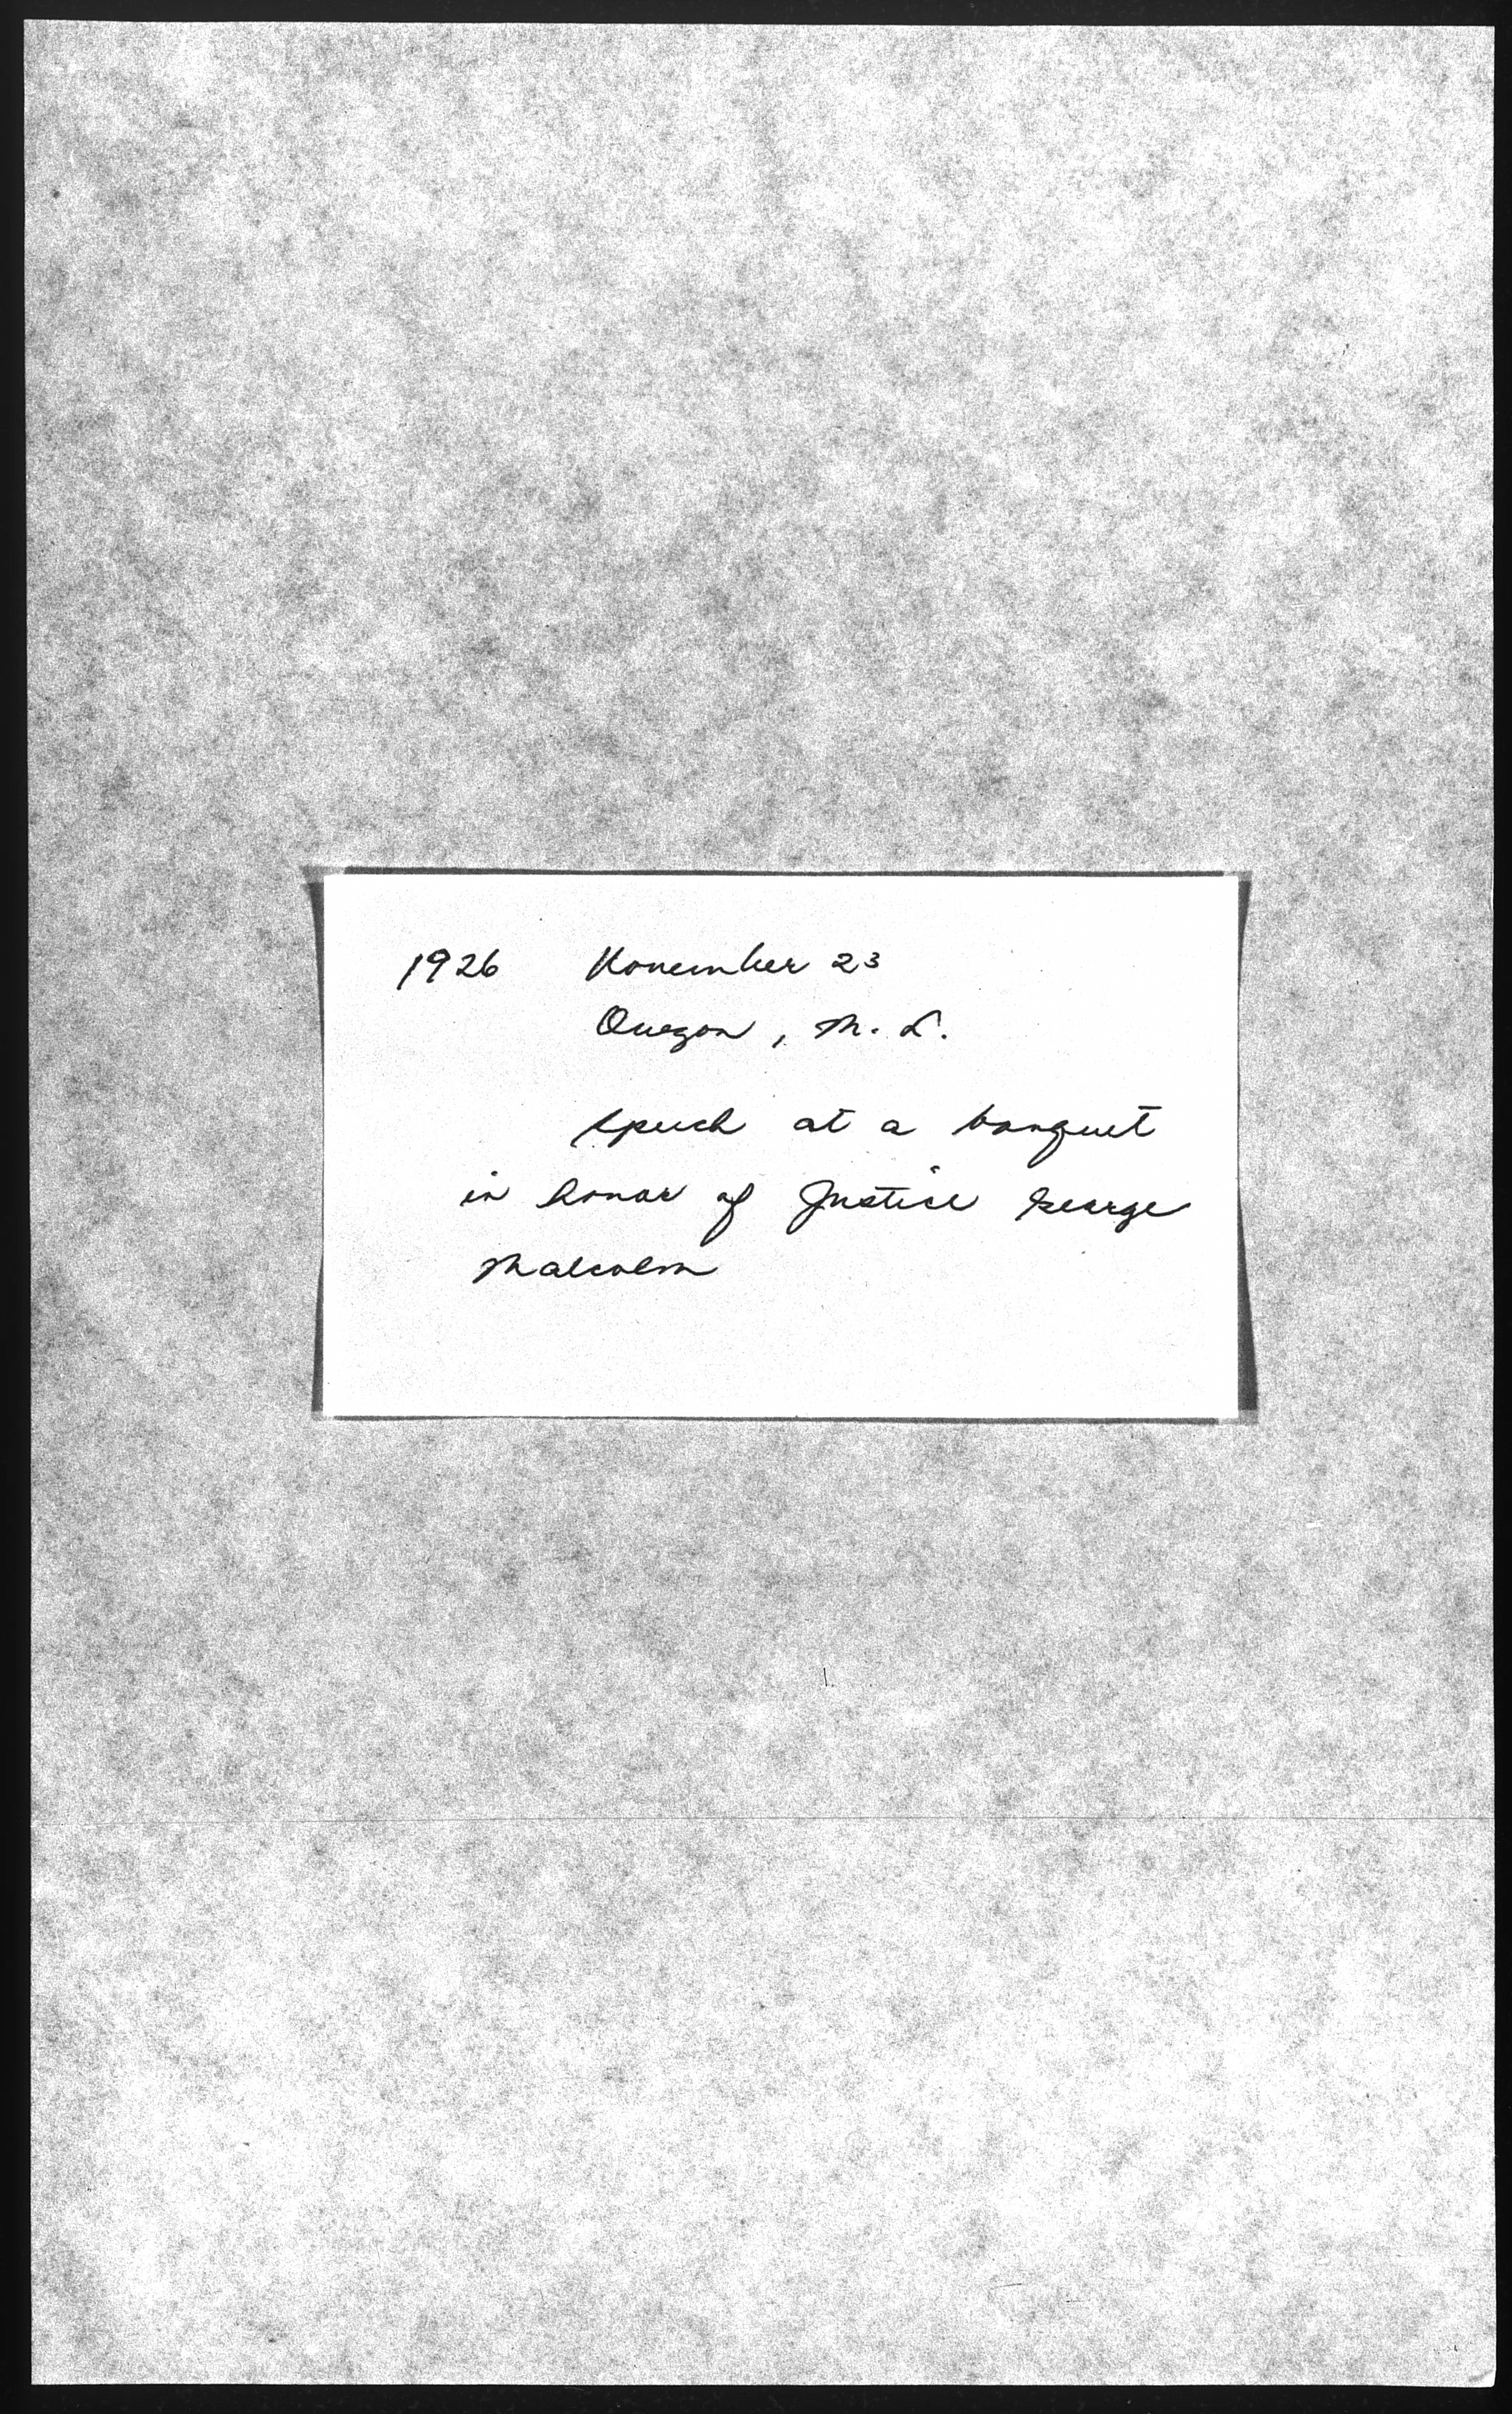 1926 November 23
Quezon, M. L.
speech at a banquet
in honor of Justice George
Malcolm